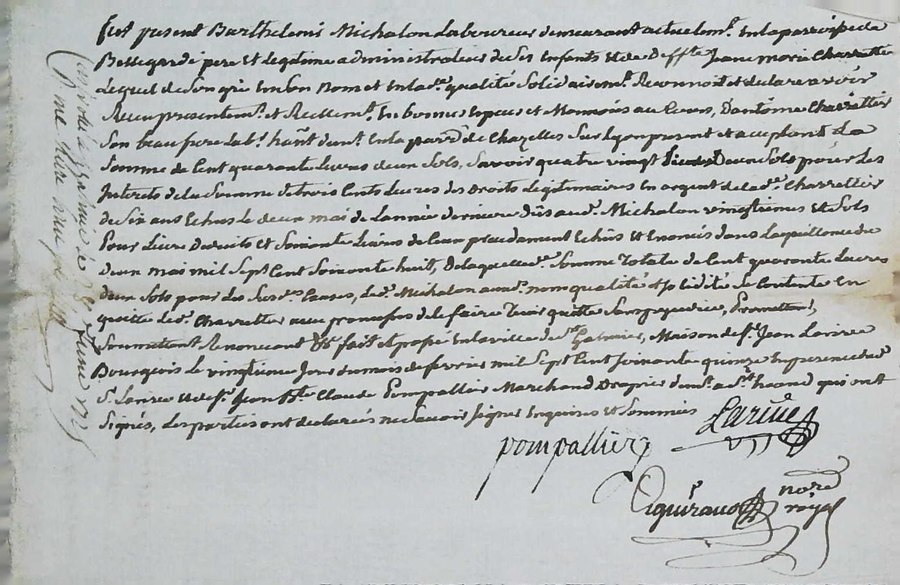 fut présent Barthelemi Michalon Laboureur demeurant actuelmt. En la paroisse de
Bellegarde pere et Legitime administrateur de ses Enfants et de Deffte Jeanne marie Charretier
Lequel de son gré En son nom et en lad. qualité Solidairemt. Reconnoit et declare avoir
Reçu presentemt. et Réellemt. En bonnes Especes et Monnoies au Cours, D'antoine Charretier
Son beaufrere Lab. hant demt. En la parr. de Chazelles Sur Lyon present et acceptant La
Somme de Cent quarante Livres deux Sols, Savoir quatre vingt deux Sols pour Les
Interets de la Somme de trois Cents Livres des Droits Legitimaires En argent de lad. Charretier
de Six ans Echus le deux mai de L'année derniere dus aud. Michalon vingtiemes et Sols
Pour Livre Deduits et Soixante Livres de Ceux precedament Echus et Enoncés dans La quittance du
deux mai mil Sept Cent Soixante huit, De laquelle Somme Totale de Cent quarante Livres
deux Sols pour Les Susd. Causes, Led. Michalon aud. nom qualité et solidité Se Contente En
quitte led. Charretier avec promesse de le faire Tenir quitte Promettant
Soumettant Renonçant fait et passé En la ville de St. Galmier, Maison de Sr. Jean Larive
Bourgeois le vingtieme Jour du mois de fevrier mil Sept Cent Soixante quinze En presence dud.
Sr. Larive et de Sr. Jean Bte Claude Pompallier Marchand Drapier demt. a St. qui ont
Signés, Les parties ont declarées ne Savoir Signer Enquises et Sommées
Larive
pompallier
nore
royal